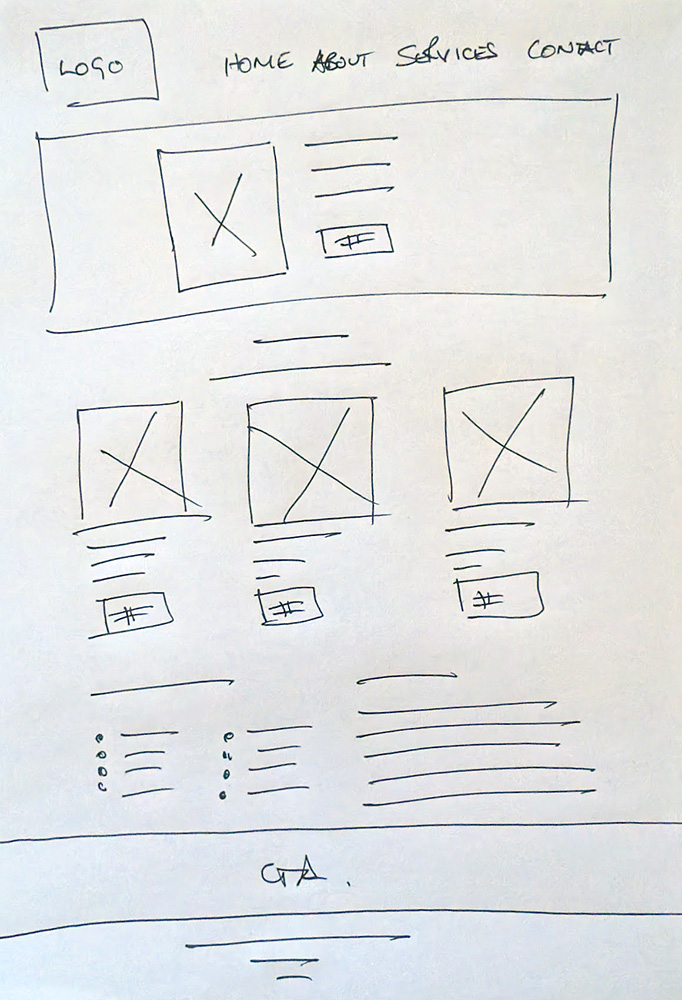 LOGO
HOME ABOUT SERVICES CONTACT
#
# # #
CTA.